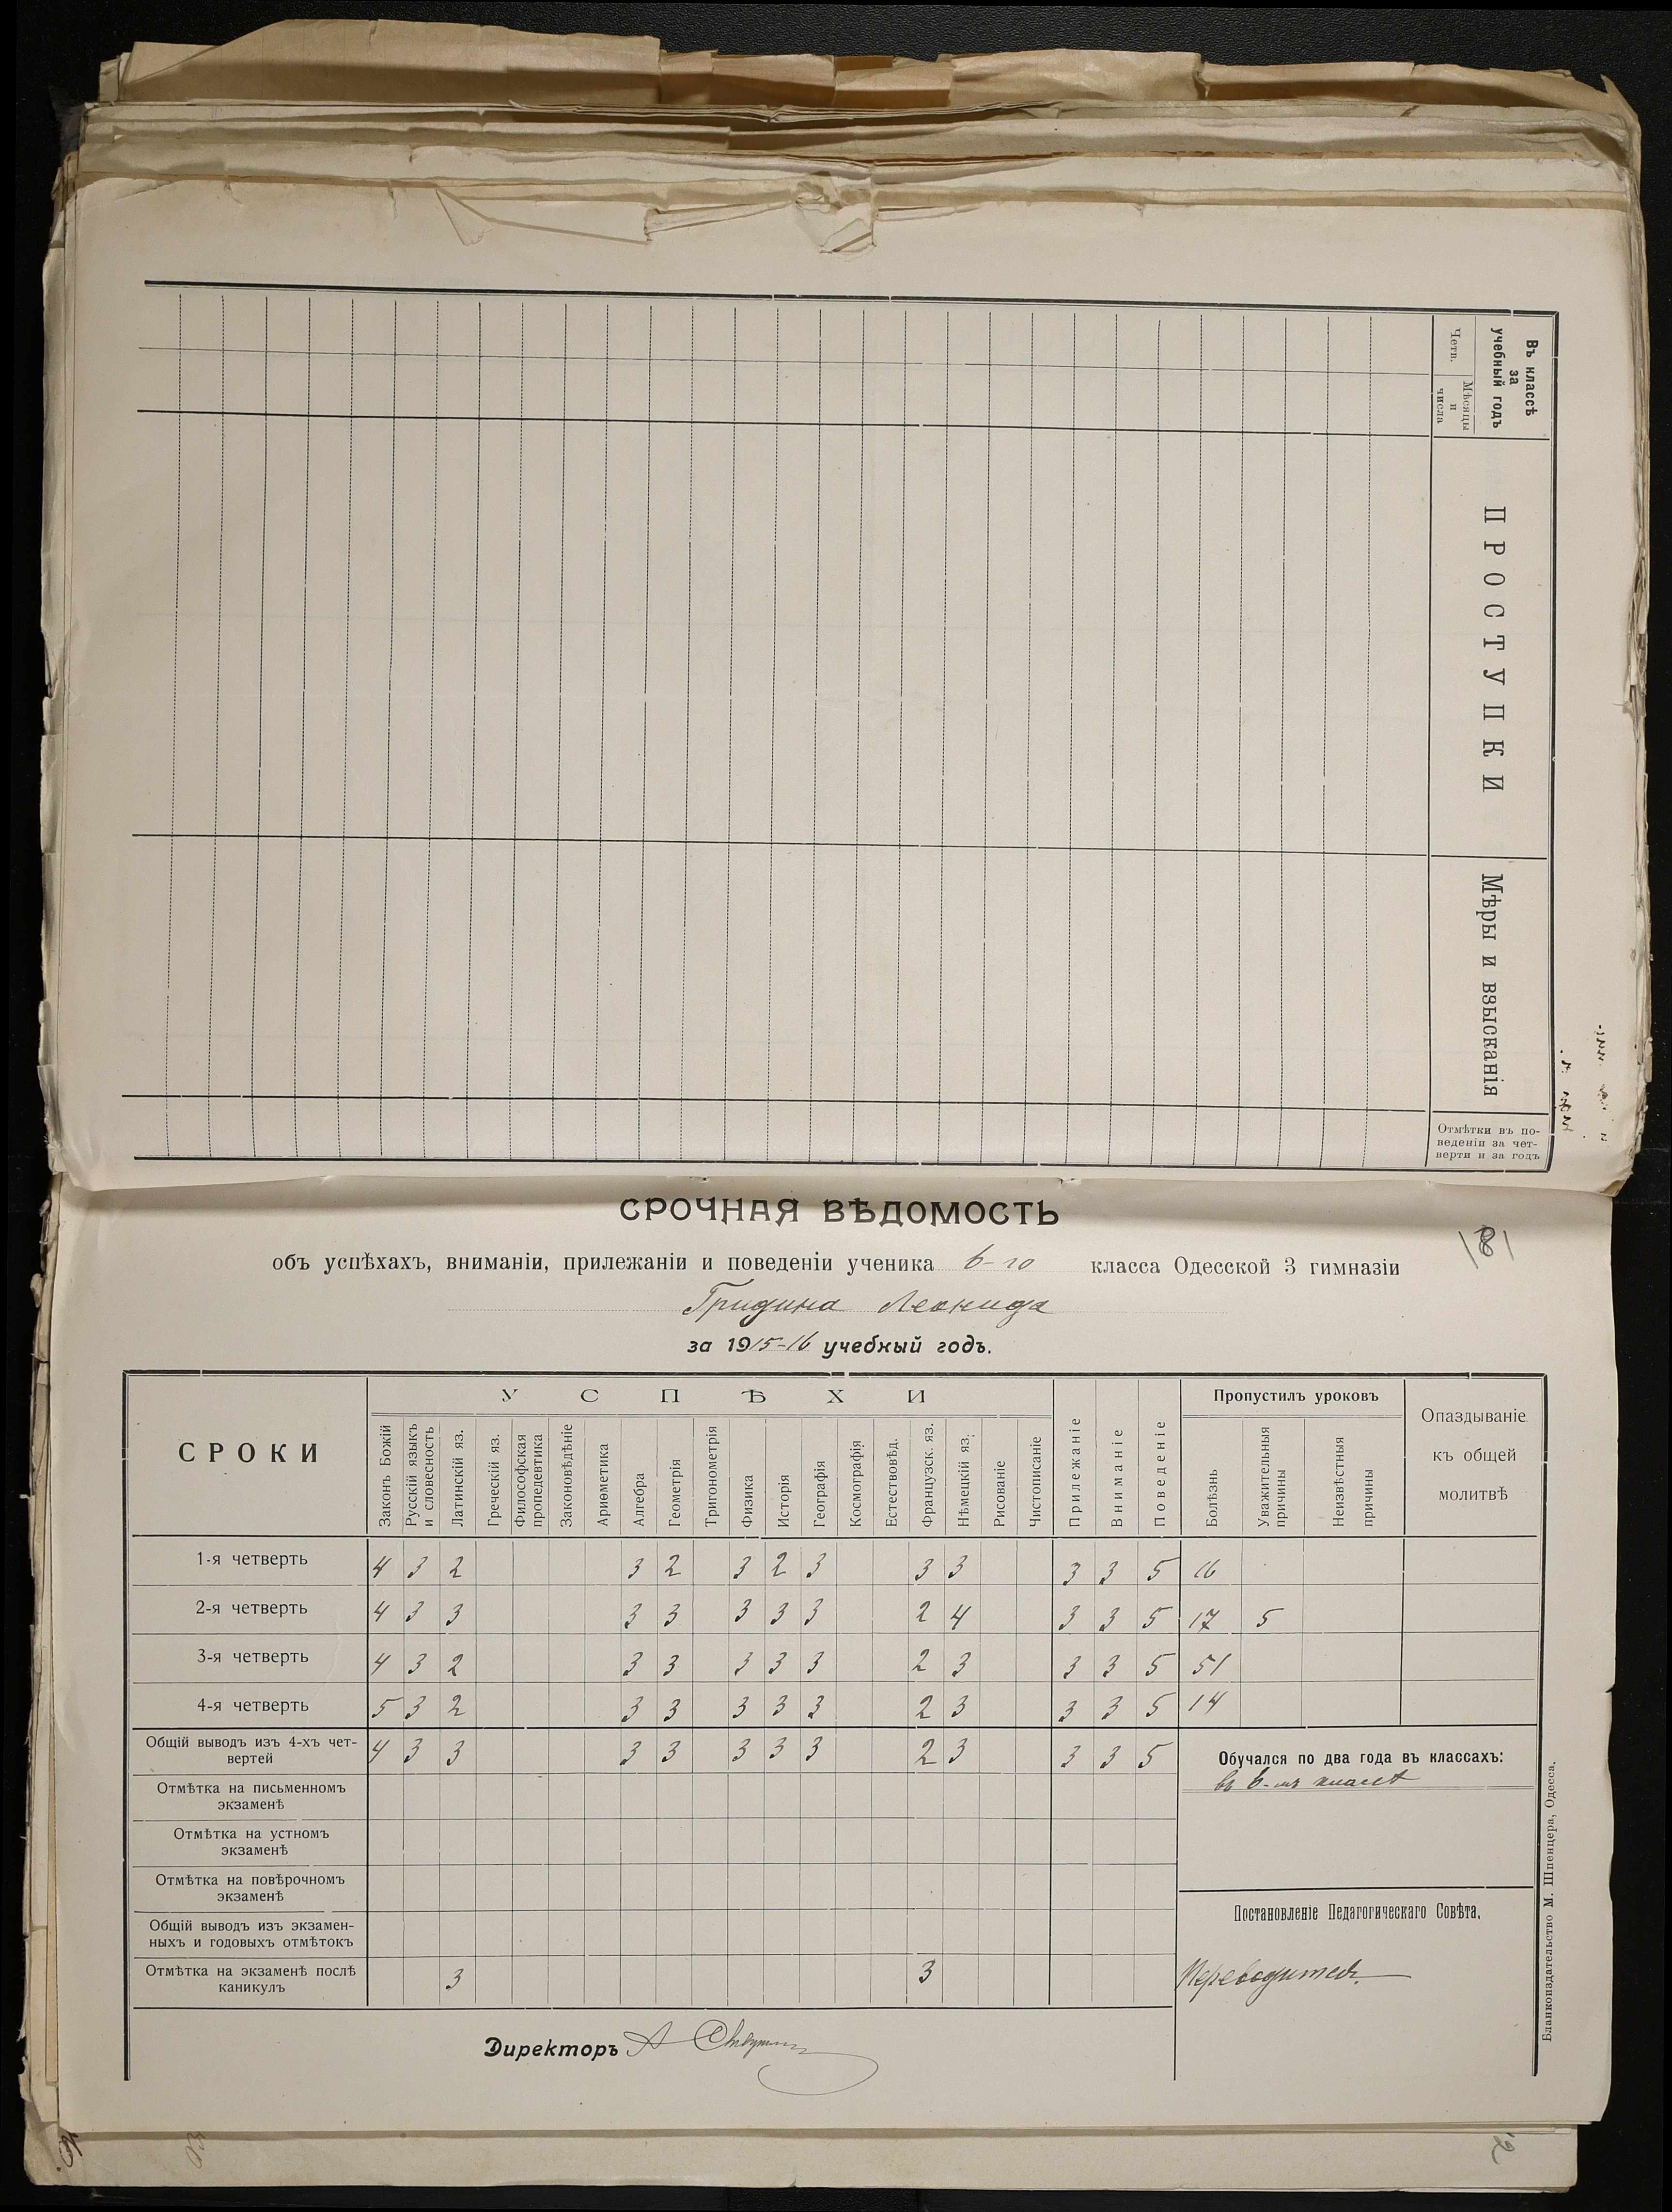 Въ классѣ
за
учебный годъ
Четв.
Мѣсяцы
и
числа
ПРОСТУПКИ
Мѣры и взысканія
Отмѣтки въ по-
веденіи за чет-
верти и за годъ
СРОЧНАЯ ВѢДОМОСТЬ
181
объ успѣхахъ, вниманіи, прилежаніи и поведеніи ученика 6-го класса Одесской 3 гимназіи
Гридина Леонида
за 1915-16 учебный годъ.
СРОКИ
УСПѢХИ
Законъ Божій
Русскій языкъ
и словесность
Латинскій яз.
Греческій яз.
Философская
пропедевтика
Законовѣдѣніе
Ариѳметика
Алгебра
Геометрія
Тригонометрія
Физика
Исторія
Географія
Космографія
Естествовѣд.
Французск. яз.
Нѣмецкій яз.
Рисованіе
Чистописаніе
Прилежаніе
Вниманіе
Поведеніе
Пропустилъ уроковъ
Болѣзнь
Уважительныя
причины
Неизвѣстныя
причины
Опаздываніе
къ общей
молитвѣ
1-я четверть 4 3 2 3 2 3 2 3 3 3 3 3 5 16
2-я четверть 4 3 3 3 3 3 3 3 2 4 3 3 5 17 5
3-я четверть 4 3 2 3 3 3 3 3 2 3 3 3 5 51
4-я четверть 5 3 2 3 3 3 3 3 2 3 3 3 5 14
Общій выводъ изъ 4-хъ чет-
вертей 4 3 3 3 3 3 3 3 2 3 3 3 5
Обучался по два года въ классахъ:
въ 6-мъ классѣ
Отмѣтка на письменномъ
экзаменѣ
Отмѣтка на устномъ
экзаменѣ
Отмѣтка на повѣрочномъ
экзаменѣ
Общій выводъ изъ экзамен-
ныхъ и годовыхъ отмѣтокъ
Отмѣтка на экзаменѣ послѣ
каникулъ 3 3
Постановленіе Педагогическаго Совѣта.
Переводится.
Директоръ А
Бланкоиздательство М. Шпенцера, Одесса.